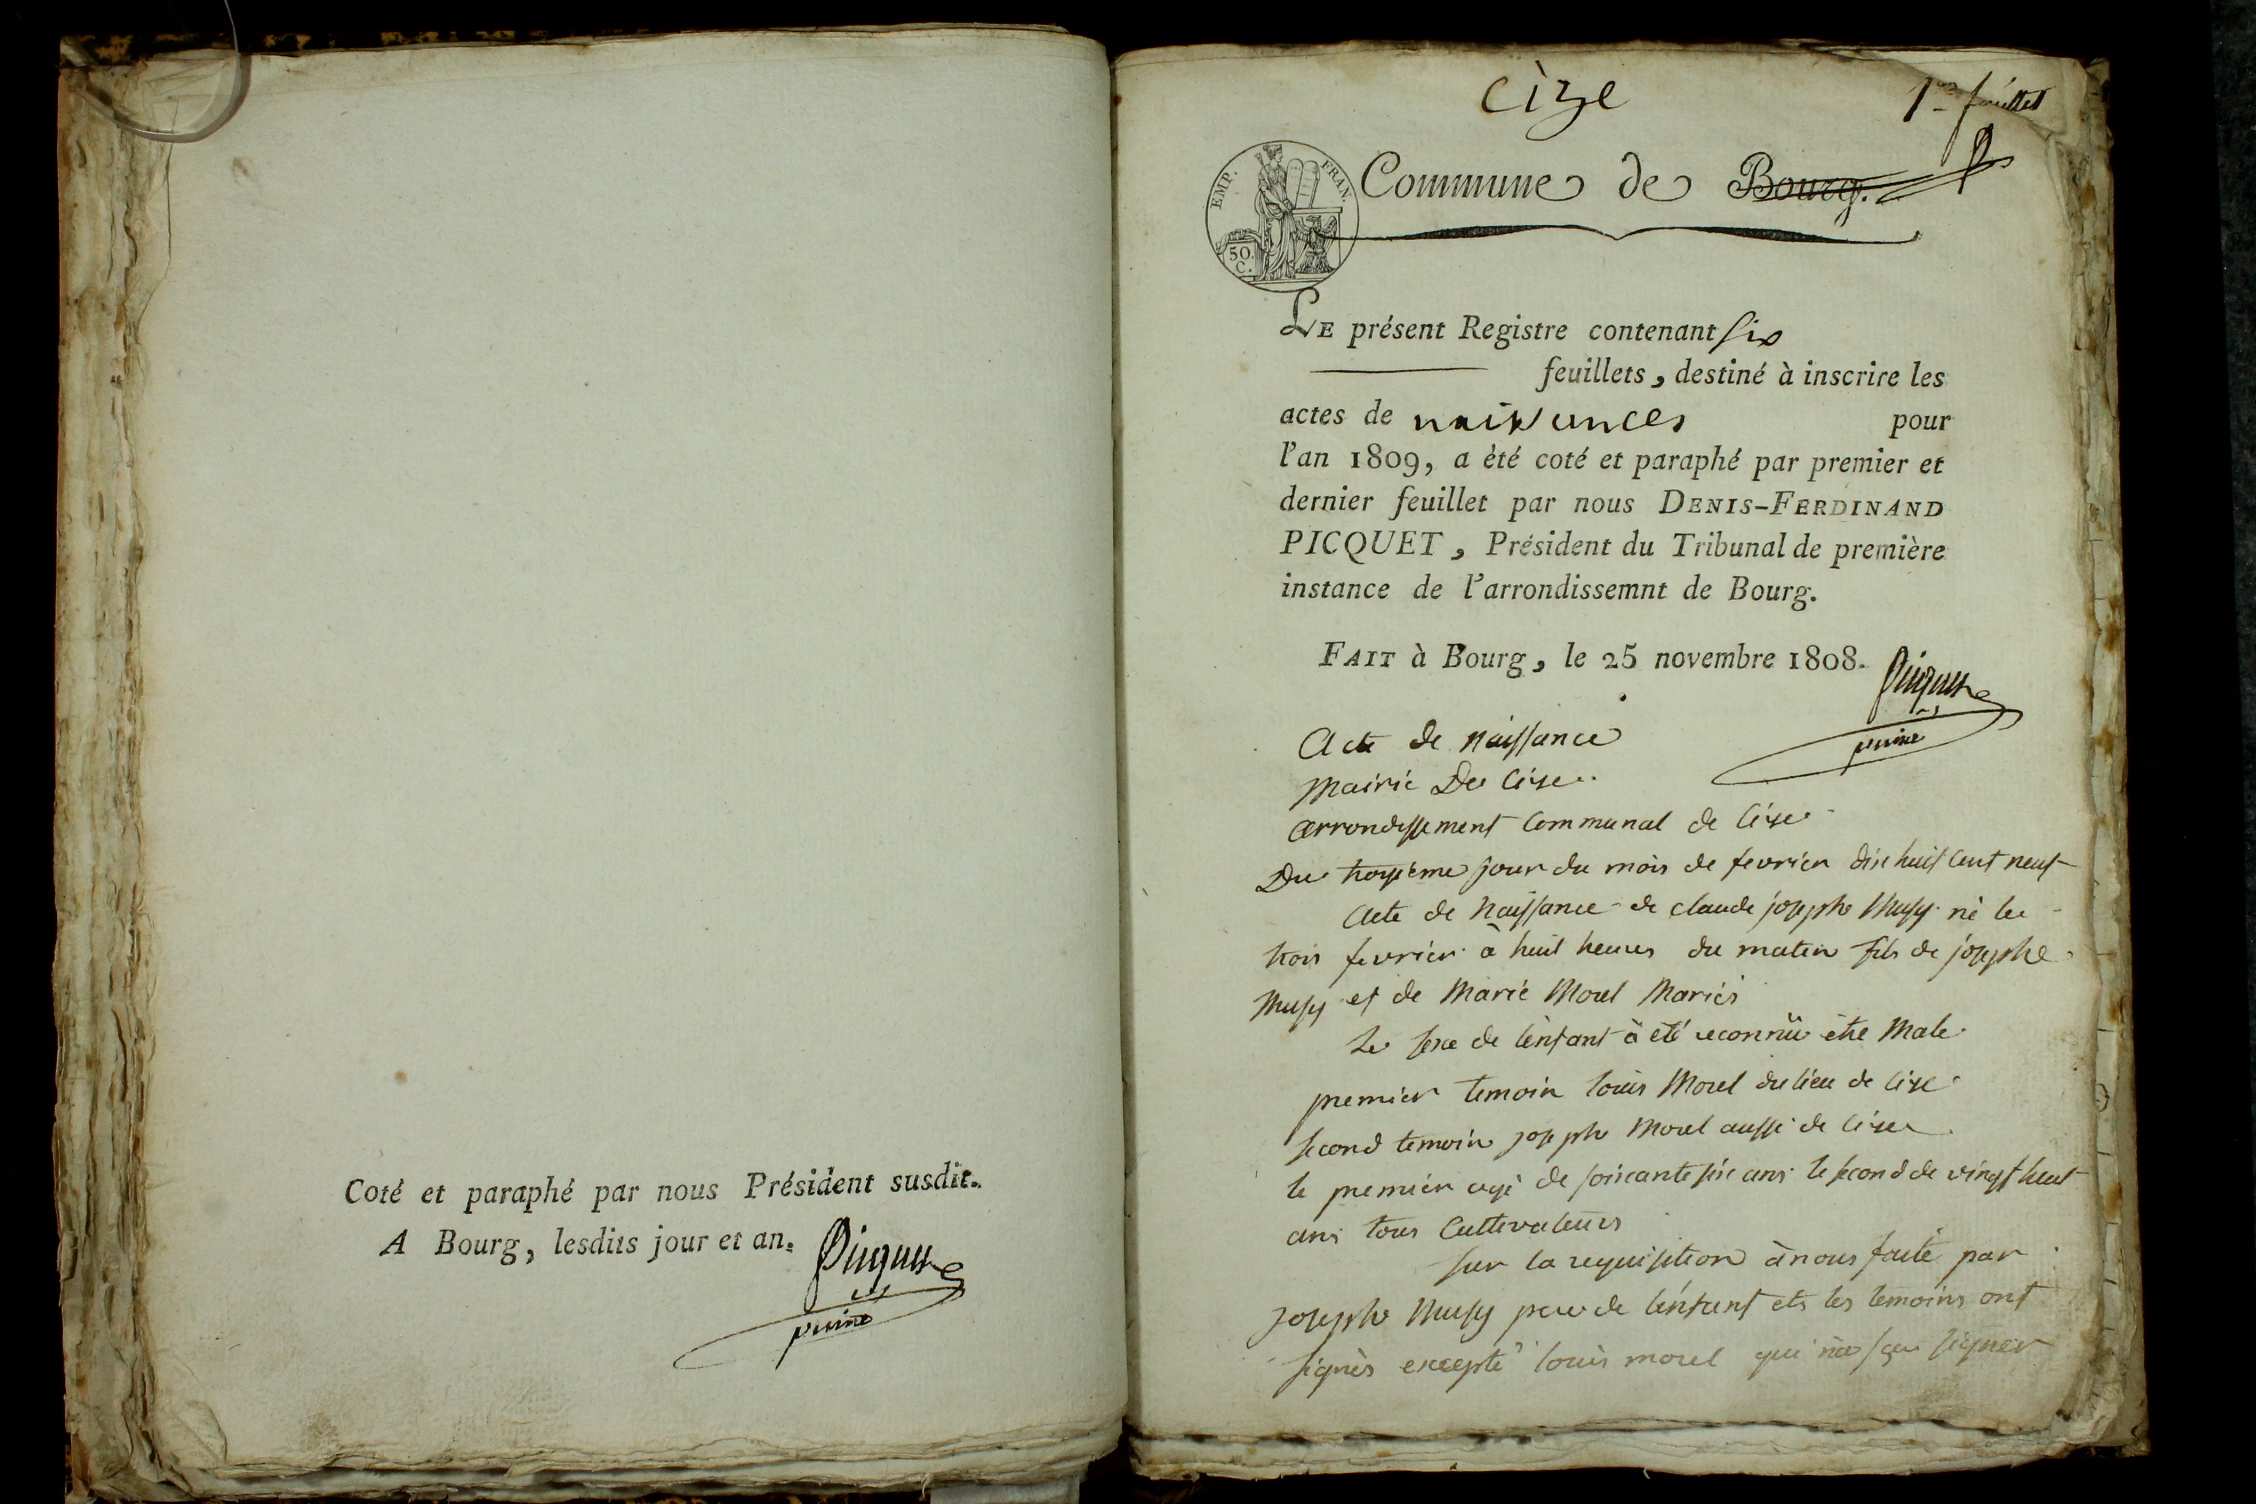 Coté et paraphé par nous Président susdit.
A Bourg, lesdits jour et an.
Picquet
Cize
1er feuillet
EMP. FRAN.
50 C.
Commune de Bourg.
LE présent Registre contenant six
feuillets, destiné à inscrire les
actes de naissances pour
l'an 1809, a été coté et paraphé par premier et
dernier feuillet par nous DENIS-FERDINAND
PICQUET, Président du Tribunal de première
instance de l'arrondissemnt de Bourg.
FAIT à Bourg, le 25 novembre 1808.
Picquet
Acte de naissance
Mairie De Cize
arrondissement Communal de Cize
Du troisième jour du mois de fevrier dix huit cent neuf
Acte de Naissance de claude josephe Musy né le
trois fevrier à huit heures du matin fils de josephe
Musy et de Marie Morel Mariés
Le sexe de lénfant à été reconnü être Male
premier temoin louis Morel du lieu de Cize
second temoin joseph Morel aussi de Cize
le premier agé de soixante six ans le second de vingt huit
ans tous Cultivateurs
sur la requisition à nous faite par
joseph Musy pere de lénfant et les temoins ont
signés excepté louis morel qui na sçu signer